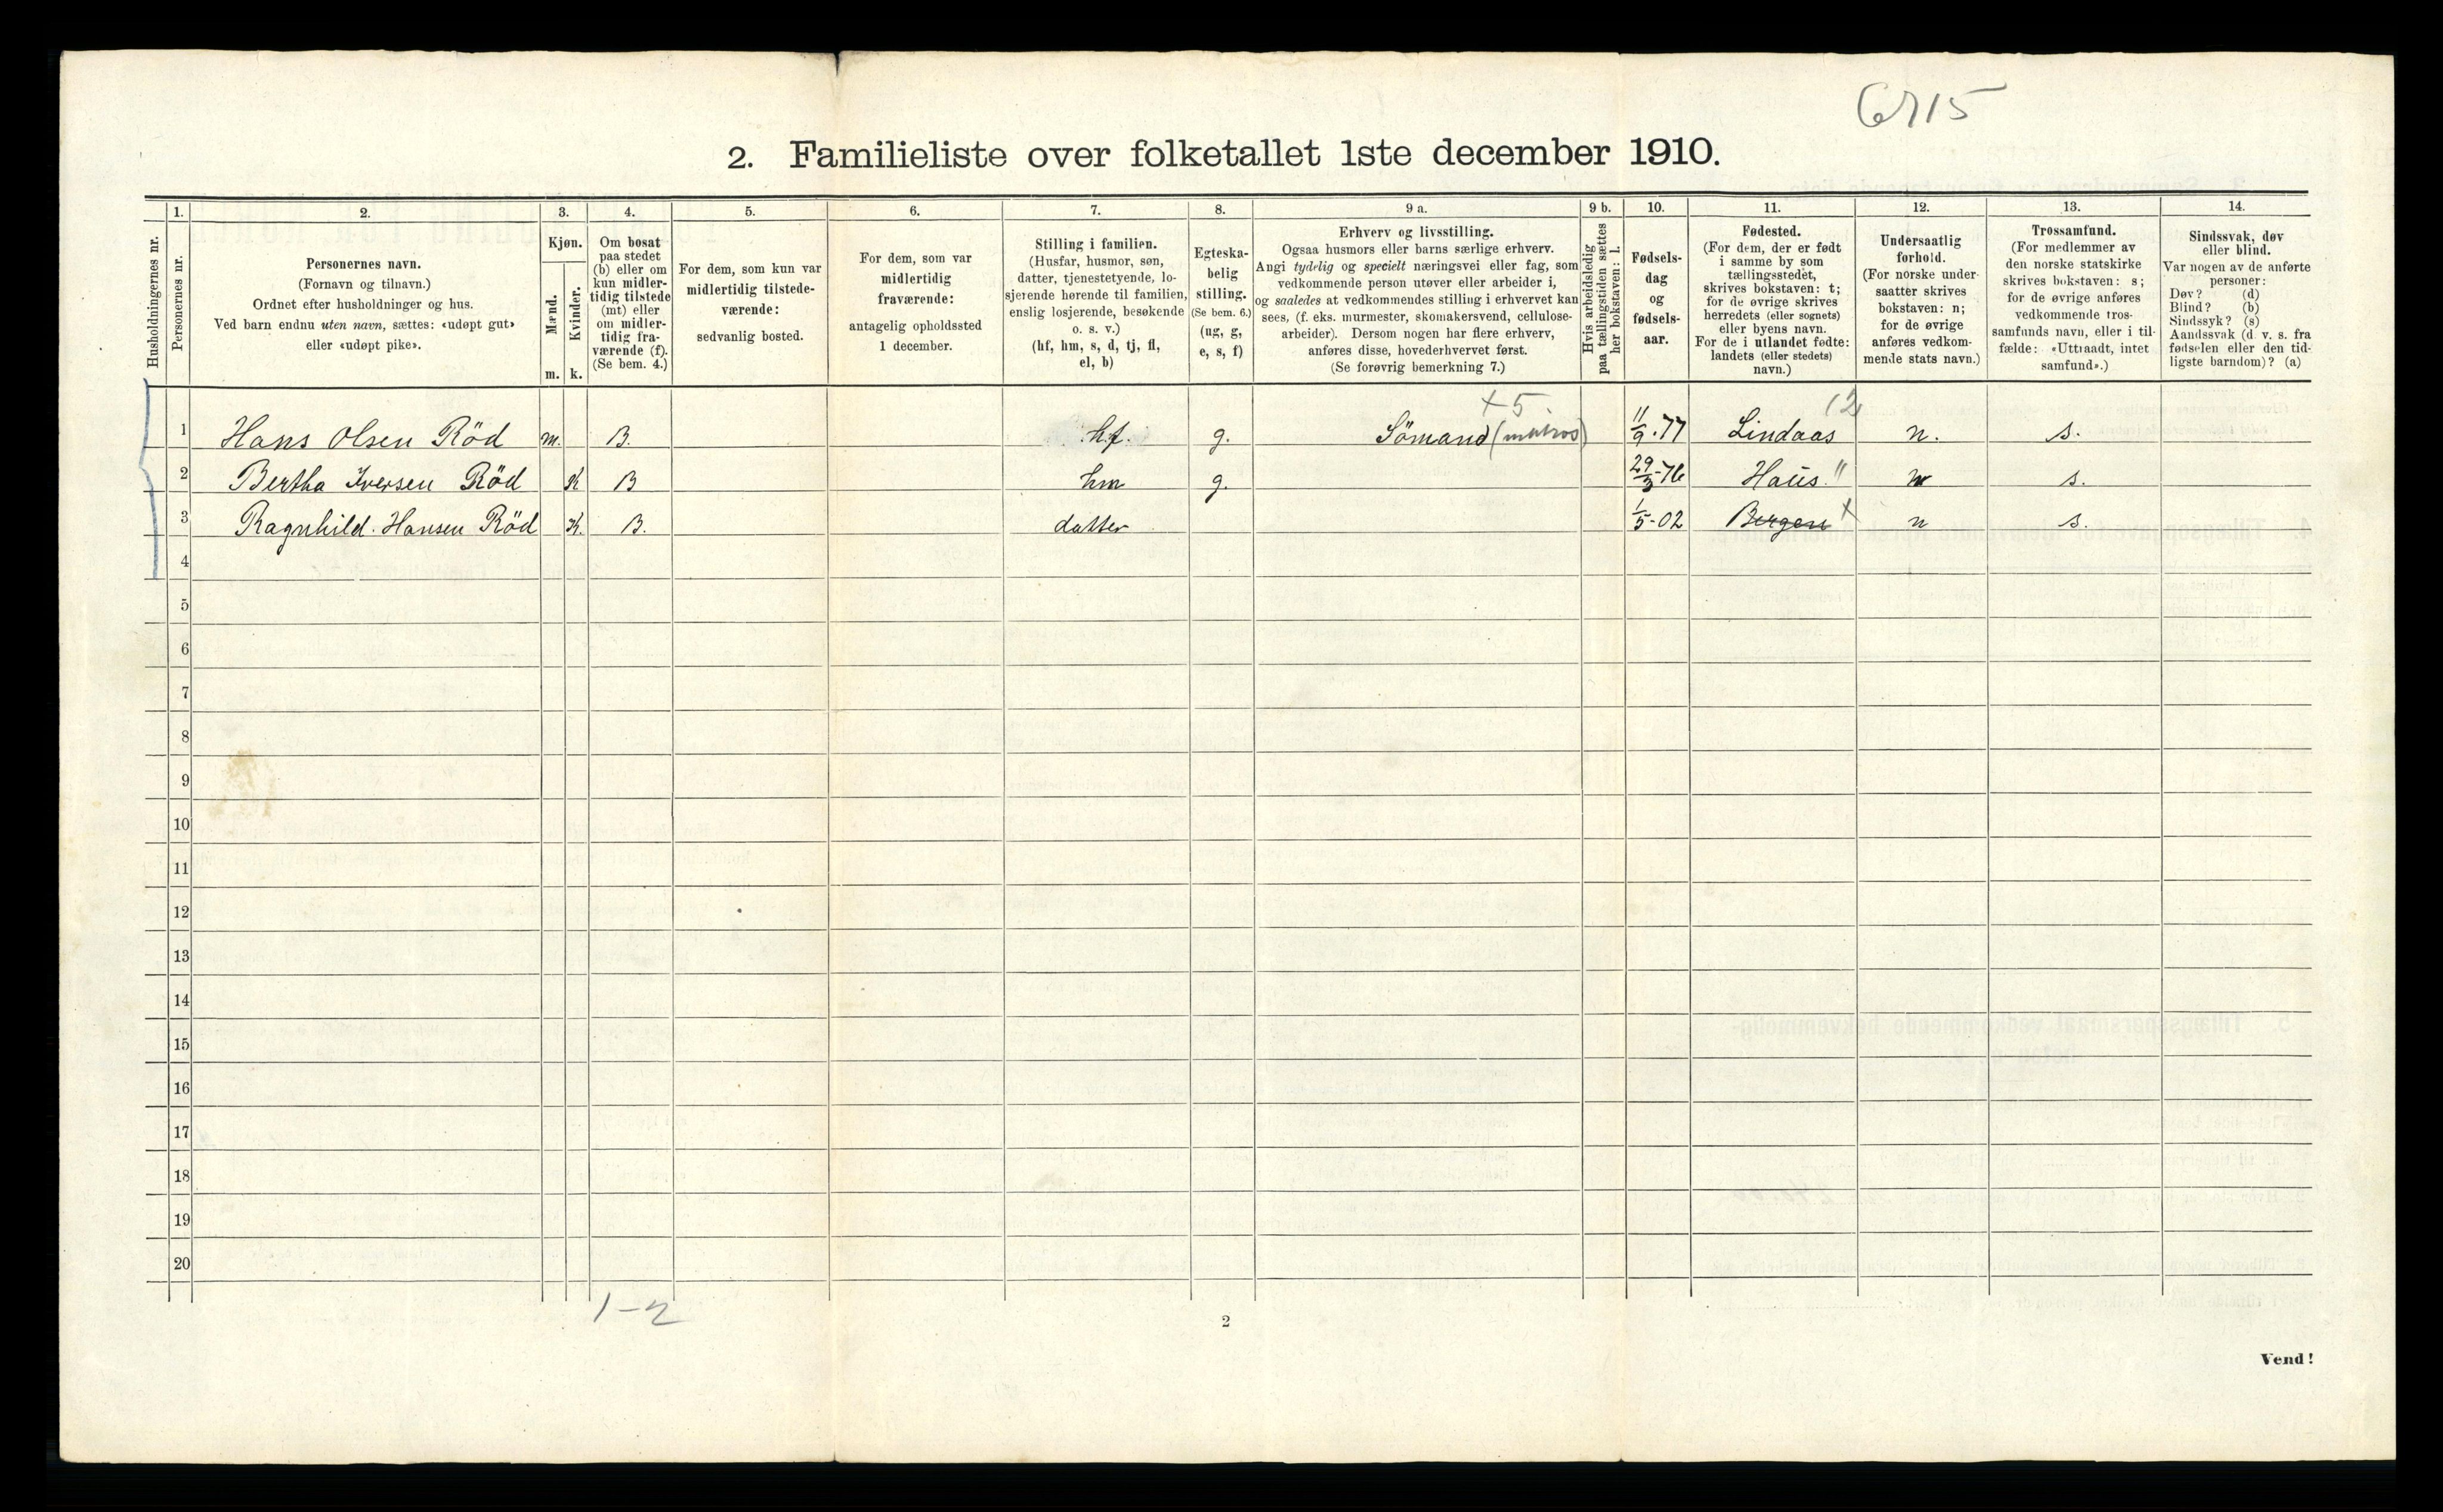 6715
2. Familieliste over folketallet 1ste december 1910.
Husholdningernes nr.
1.
Personernes nr.
2.
Personernes navn.
(Fornavn og tilnavn.)
Ordnet efter husholdninger og hus.
Ved barn endnu uten navn, sættes: «udøpt gut»
eller «udøpt pike».
3.
Kjøn.
Mænd.
Kvinder.
m. k.
4.
Om bosat
paa stedet
(b) eller om
kun midler-
tidig tilstede
(mt) eller
om midler-
tidig fra-
værende (f).
(Se bem. 4.)
5.
For dem, som kun var
midlertidig tilstede-
værende:
sedvanlig bosted.
6.
For dem, som var
midlertidig
fraværende:
antagelig opholdssted
1 december.
7.
Stilling i familien.
(Husfar, husmor, søn,
datter, tjenestetyende, lo-
sjerende hørende til familien,
enslig losjerende, besøkende
o. s. v.)
(hf, hm, s, d, tj, fl,
el, b)
8.
Egteska-
belig
stilling.
(Se bem. 6.)
(ug, g,
e, s, f)
9 a.
Erhverv og livsstilling.
Ogsaa husmors eller barns særlige erhverv.
Angi tydelig og specielt næringsvei eller fag, som
vedkommende person utøver eller arbeider i,
og saaledes at vedkommendes stilling i erhvervet kan
sees, (f. eks. murmester, skomakersvend, cellulose-
arbeider). Dersom nogen har flere erhverv,
anføres disse, hovederhvervet først.
(Se forøvrig bemerkning 7.)
9 b.
Hvis arbeidsledig
paa tællingstiden sættes
her bokstaven: l.
10.
Fødsels-
dag
og
fødsels-
aar.
11.
Fødested.
(For dem, der er født
i samme by som
tællingsstedet,
skrives bokstaven: t;
for de øvrige skrives
herredets (eller sognets)
eller byens navn.
For de i utlandet fødte:
landets (eller stedets)
navn.)
12.
Undersaatlig
forhold.
(For norske under-
saatter skrives
bokstaven: n;
for de øvrige
anføres vedkom-
mende stats navn.)
13.
Trossamfund.
(For medlemmer av
den norske statskirke
skrives bokstaven: s;
for de øvrige anføres
vedkommende tros-
samfunds navn, eller i til-
fælde: «Uttraadt, intet
samfund».)
14.
Sindssvak, døv
eller blind.
Var nogen av de anførte
personer:
Døv? (d)
Blind? (b)
Sindssyk? (s)
Aandssvak (d. v. s. fra
fødselen eller den tid-
ligste barndom)? (a)
+5. 12
1 Hans Olsen Röd m. B. hf. g. Sömand (matros) 11/9.77 Lindaas n. s.
2 Bertha Iversen Röd K B hm g. 29/3-76 Haus. " n s.
3 Ragnhild. Hansen Röd K. B. datter 1/5-02 Bergen x n s.
4
5
6
7
8
9
10
11
12
13
14
15
16
17
18
19
20
1-2
2
Vend!